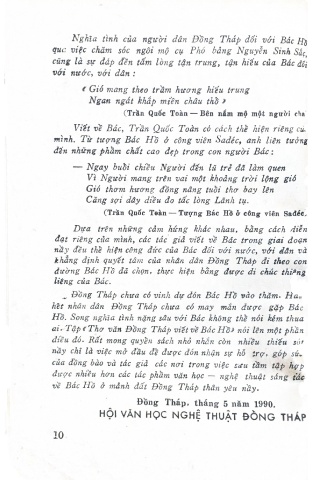 Nghĩa tình của người dân Đồng Tháp đối với Bác Hồ
qua việc chăm sóc ngôi mộ cụ Phó bảng Nguyễn Sinh Sắc,
cũng là sự đáp đền tấm lòng tận trung, tận hiếu của Bác đối
với nước, với dân :
« Gió mang theo trầm hương hiếu trung
Ngan ngát khắp miền châu thổ »
(Trần Quốc Toàn — Bên nấm mộ một người cha
Viết về Bác, Trần Quốc Toàn có cách thể hiện riêng củ
mình. Từ tượng Bác Hồ ở công viên Sadéc, anh liên tưởng
đến những phẩm chất cao đẹp trong con người Bác :
— Ngay buổi chiều Người đến lũ trẻ đã làm quen
Vì Người mang trên vai một khoảng trời lộng gió
Gió thơm hương đồng nâng tuổi thơ bay lên
Căng sợi dây diều đo tấc lòng Lãnh tụ.
(Trần Quốc Toàn — Tượng Bác Hồ ở công viên Sadéc.
Dựa trên những cảm hứng khác nhau, bằng cách diễn
đạt riêng của mình, các tác giả viết về Bác trong giai đoạn
này đều thể hiện công đức của Bác đối với nước, với dân và
khẳng định quyết tâm của nhân dân Đồng Tháp đi theo con
đường Bác Hồ đã chọn, thực hiện bằng được di chúc thiêng
liêng của Bác.
Đồng Tháp chưa có vinh dự đón Bác Hồ vào thăm. Hầu
hết nhân dân Đồng Tháp chưa có may mắn được gặp Bác
Hồ. Song nghĩa tình nặng sâu với Bác không thể nói kém thua
ai. Tập « Thơ văn Đồng Tháp viết về Bác Hồ » nói lên một phần
điều đó. Rất mong quyển sách nhỏ nhắn còn nhiều thiếu sót
này chỉ là việc mở đầu để được đón nhận sự hỗ trợ, góp sức
của đồng bào và tác giả các nơi trong việc sưu tầm tập hợp
được nhiều hơn các tác phẩm văn học — nghệ thuật sáng tác
về Bác Hồ ở mảnh đất Đồng Tháp thân yêu này.
Đồng Tháp, tháng 5 năm 1990.
HỘI VĂN HỌC NGHỆ THUẬT ĐỒNG THÁP
10